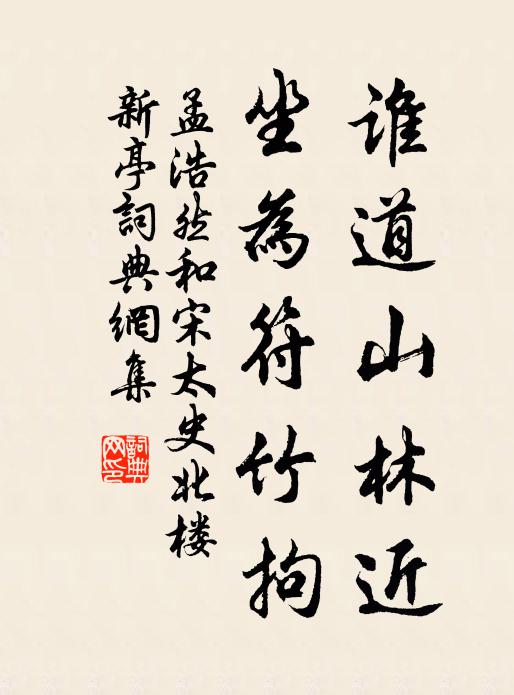 谁道山林近
坐為符竹拘
孟浩然和宋太史北楼
新亭詞典網集
詞典网印